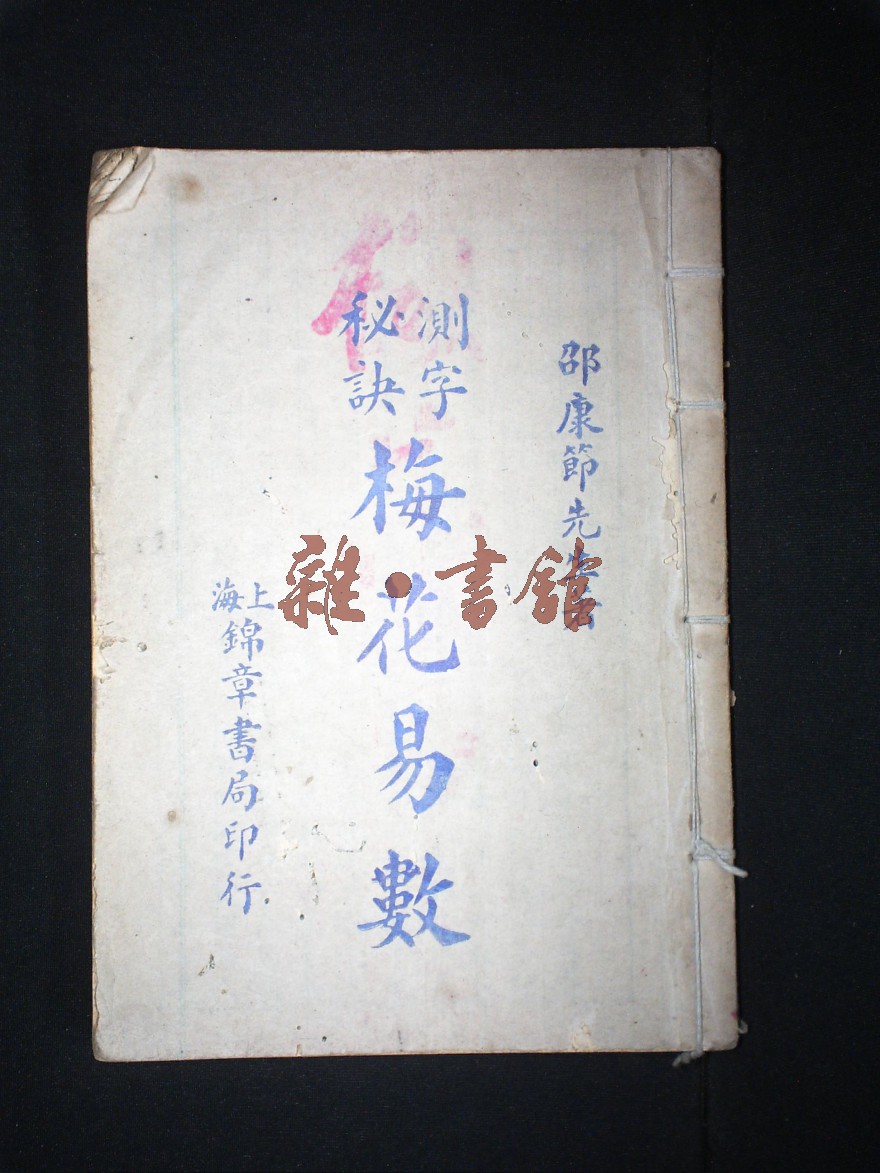 邵康節先生著
測字
秘訣
梅花易數
上海
錦章書局印行
雜·書舘